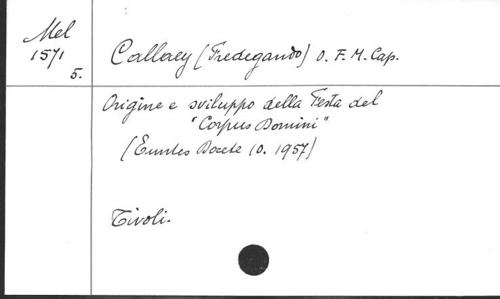 Mel
1571
5.
Callaey (Fredegando) O. F. M. Cap.
Origine e sviluppo della Festa del
"Corpus Domini"
(Euntes Docete 10. 1957)
Tivoli.